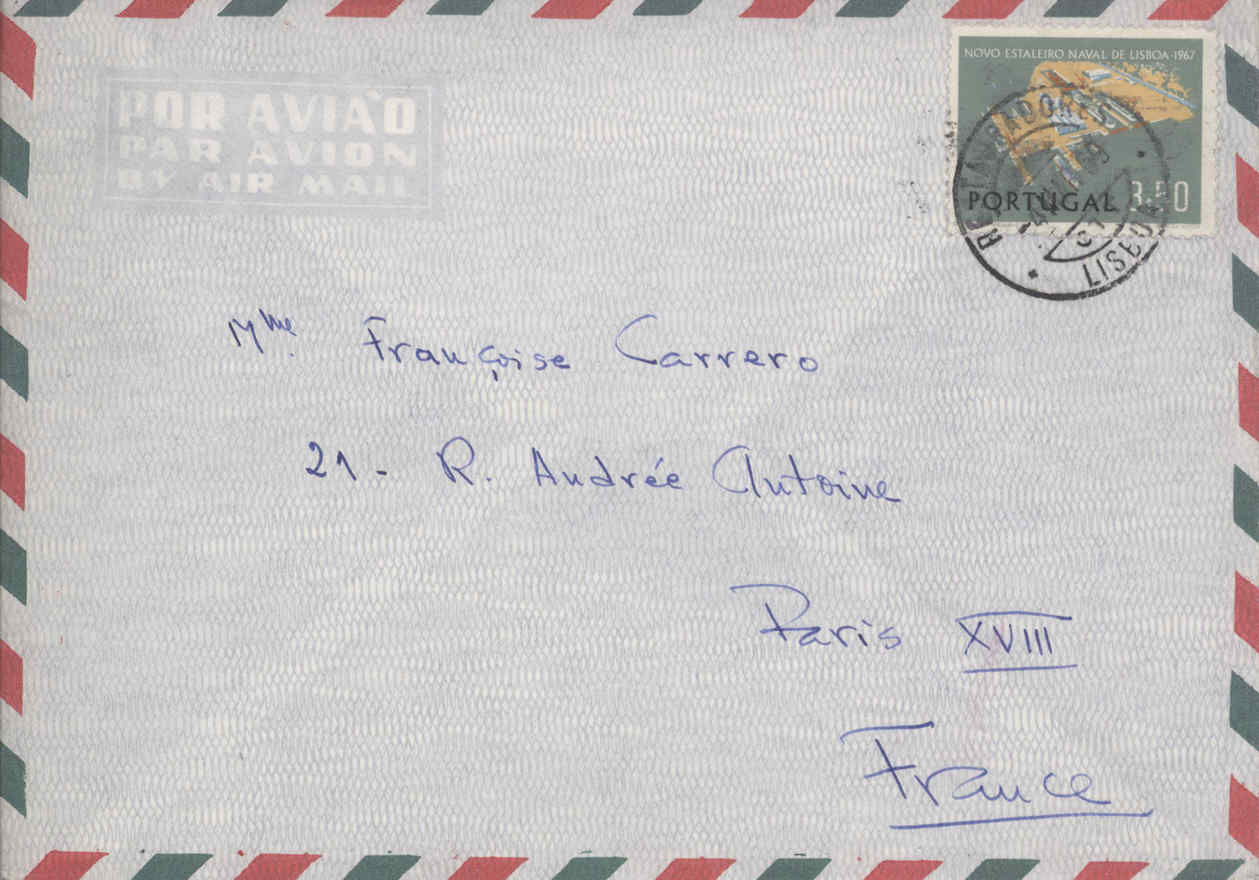 POR AVIÃO
PAR AVION
BY AIR MAIL
NOVO ESTALEIRO NAVAL DE LISBOA-1967
PORTUGAL 3.50
RESTAURADORES
LISBOA
Mme. Françoise Carrero
21 - R. Andrée Antoine
Paris XVIII
France